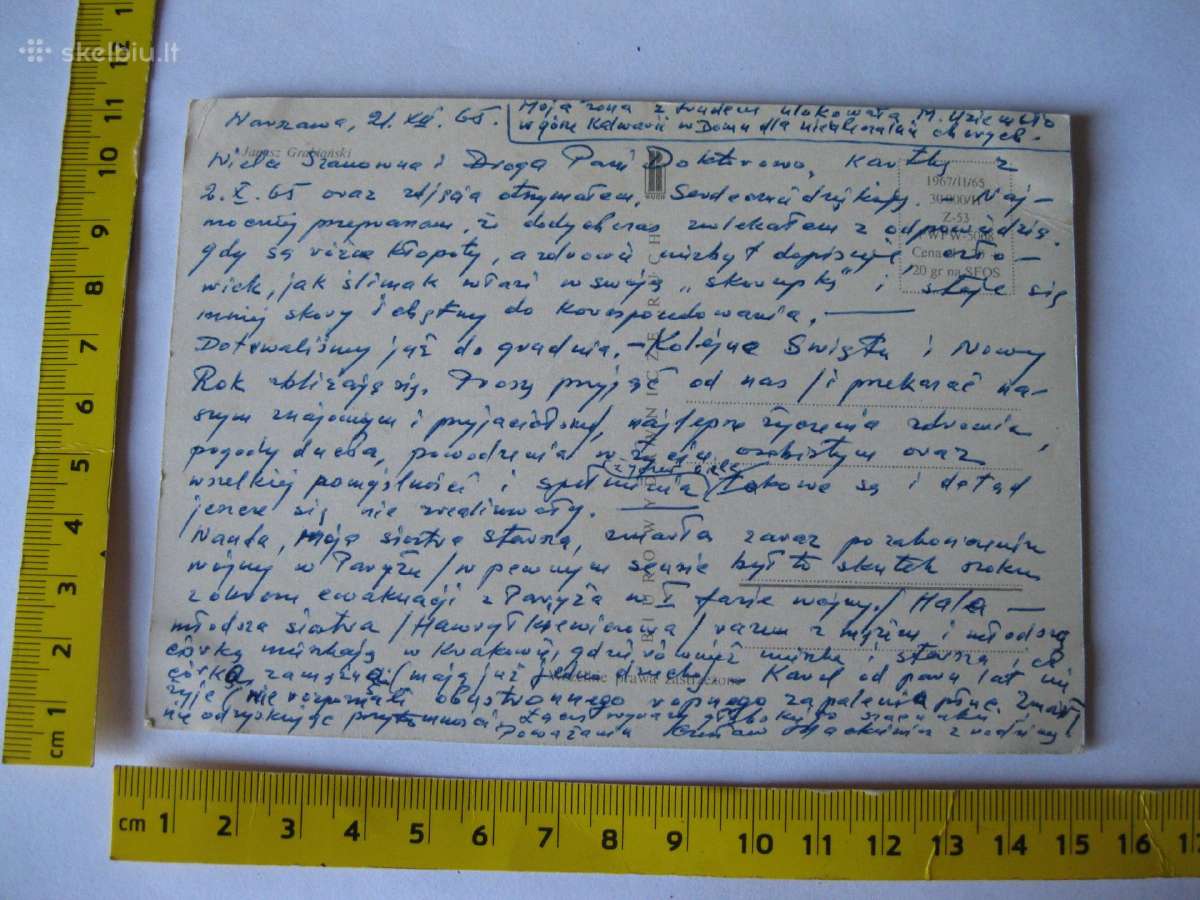 skelbiu.lt
Moja żona z trudem ulokowała M.
w Górze Kalwarii w Domu dla nieuleczalnie chorych.
Warszawa, 21.XII.65.
Janusz Grabiański
Wielce Szanowna i Droga Pani Doktorowo, Kartkę z
2.X.65 oraz zdjęcia otrzymałem. Serdecznie dziękuję. Naj-
mocniej przepraszam, że dotychczas zwlekałem z odpowiedzią.
gdy są różne kłopoty, a zdrowie niezbyt dopisuje, czło-
wiek, jak ślimak włazi w swoją „skorupkę" i staje się
mniej skory i chętny do korespondowania.
Dotrwaliśmy już do grudnia. – Kolejne Święta i Nowy
Rok zbliżają się. Proszę przyjąć od nas /i przekazać na-
szym znajomym i przyjaciołom/ najlepsze życzenia zdrowia,
pogody ducha, powodzenia w życiu osobistym oraz
wszelkiej pomyślności i spełnienia takowe są i dotąd
jeszcze się nie zrealizowały.
Wanda, moja siostra starsza, zmarła zaraz po zakończeniu
wojny w Paryżu /w pewnym sensie był to skutek
ewakuacji z Paryża w I fazie wojny./ Hala –
młodsza siostra / / razem z mężem i młodszą
córką mieszkają w Krakowie, gdzie również mieszka i starsza ich
córka zamężna /mają już jedno dziecko/. Karol od paru lat nie
żyje /nie rozpoznali obustronnego ropnego zapalenia płuc. Zmarł
nie odzyskując przytomności. Łączę wyrazy głębokiego szacunku i
poważania z rodziną
RUCH
BIURO WYDAWNICZE RUCH
1967/II/65
30 000/II
Z-53
Cena
20 gr na SFOS
Wszelkie prawa zastrzeżone
cm 1 2 3 4 5 6 7 8 9 10 11 12
cm 1 2 3 4 5 6 7 8 9 10 11 12 13 14 15 16